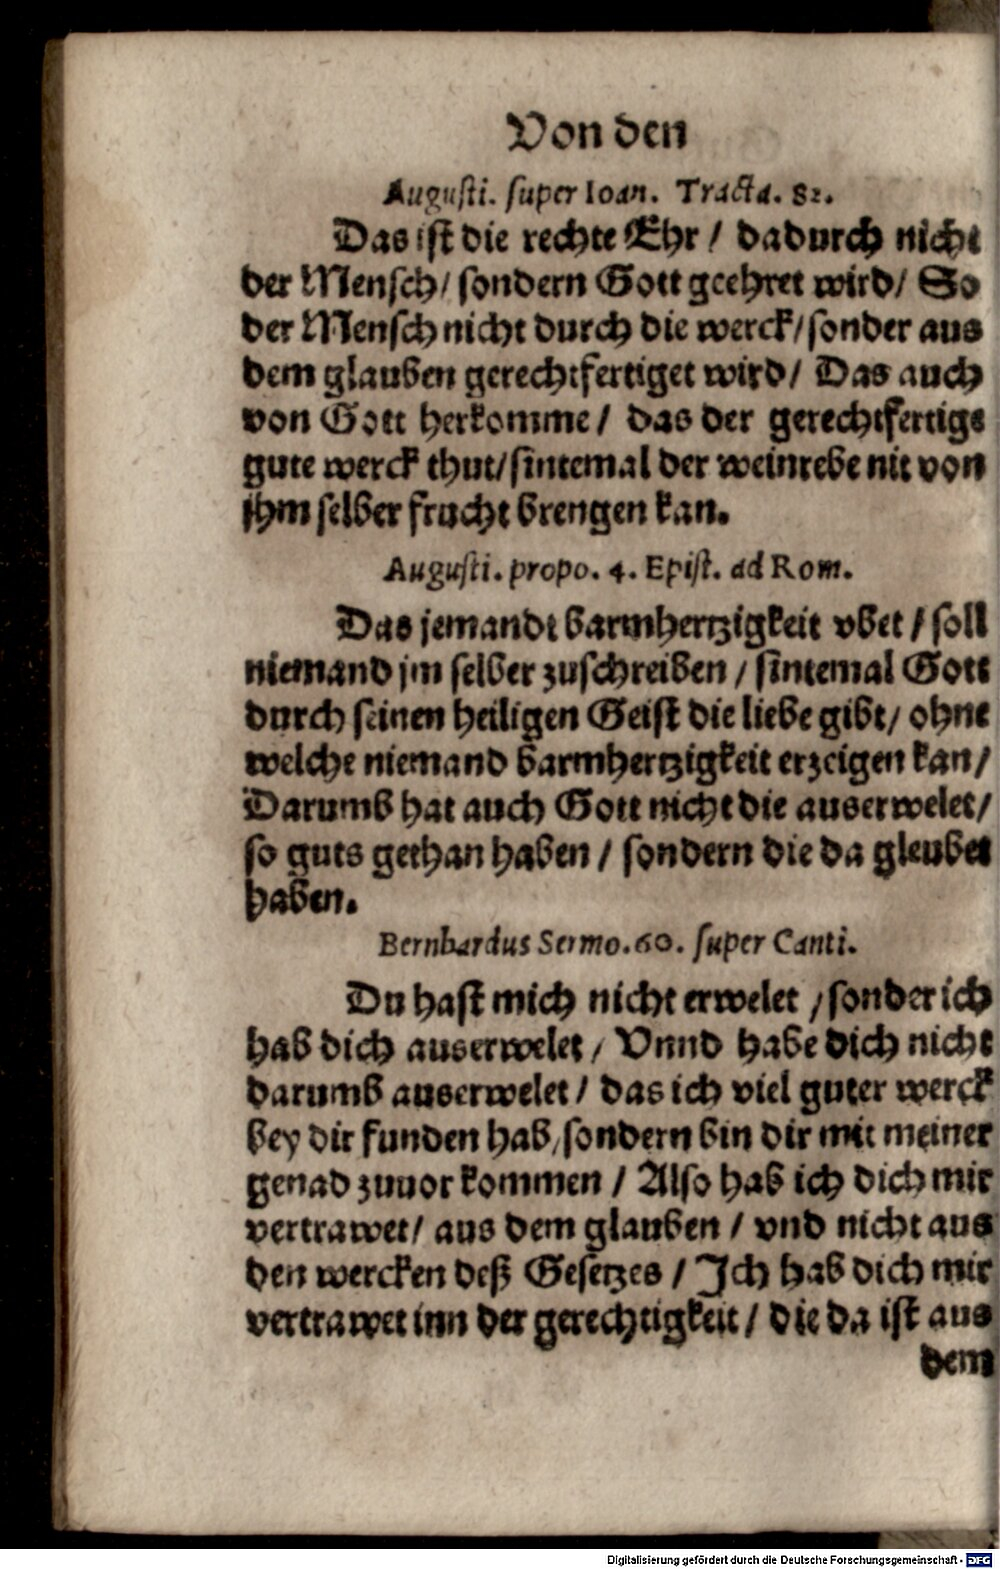 Von den
Augusti. super Ioan. Tracta. 82.
Das ist die rechte Ehr / dadurch nicht
der Mensch / sondern Gott geehret wird / So
der Mensch nicht durch die werck / sonder aus
dem glauben gerechtfertiget wird / Das auch
von Gott herkomme / das der gerechtfertigt
gute werck thut / sintemal der weinrebe nit von
jhm selber frucht brengen kan.
Augusti. propo. 4. Epist. ad Rom.
Das jemandt barmhertzigkeit vbet / soll
niemand jm selber zuschreiben / sintemal Gott
durch seinen heiligen Geist die liebe gibt / ohne
welche niemand barmhertzigkeit erzeigen kan /
Darumb hat auch Gott nicht die auserwelet /
so guts gethan haben / sondern die da gleubet
haben.
Bernhardus Sermo. 60. super Canti.
Du hast mich nicht erwelet / sonder ich
hab dich auserwelet / Vnnd habe dich nicht
darumb auserwelet / das ich viel guter werck
bey dir funden hab / sondern bin dir mit meiner
genad zuuor kommen / Also hab ich dich mir
vertrawet / aus dem glauben / vnd nicht aus
den wercken deß Gesetzes / Jch hab dich mir
vertrawet inn der gerechtigkeit / die da ist aus
dem
Digitalisierung gefördert durch die Deutsche Forschungsgemeinschaft - DFG